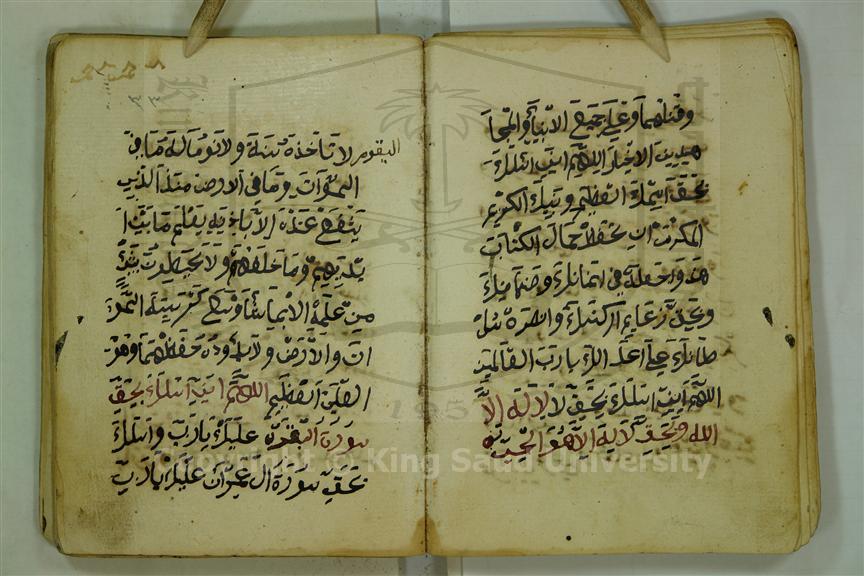 وفضلهما وعلى جميع الانبياء والمجا
هيدين الاخيار اللهم اني اسئلك
بحق اسمك العظيم ونبيك الكريم
المكرم ان تحفظ حمال الكتاب
هذ واجعله في امانك وضمانك
واعدائك يا رب العالمين
اللهم اني اسئلك بحق لا اله الا
الله وبحق لا اله الا هو الحي
القيوم لا تاخذه سنة ولا نوم له ما في
السموات وما في الارض منذ الذي
يشفع عنده الا باذنه يعلم ما بين ا
يديهم وما خلفهم ولا يحيطون بشيء
من علمه الا بما شا وسع كرسيه السمو
ات والارض ولا يؤده حفظهما وهو
العلي العظيم اللهم اني اسئلك بحق
سورة البقرة عليك يا رب واسئلك
بحق سورة ال عمران عليك يا رب
٣٣
Copyright © King Saud University
1957